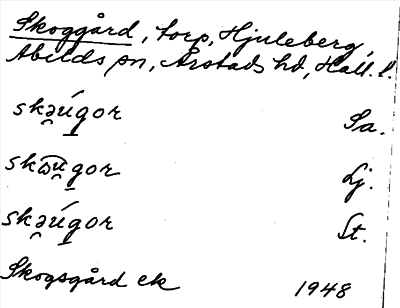 Skoggård, torp, Hjuleberg,
Abilds sn, Årstads hd, Hall. l.
skə̯ú̱gor Sa.
skɷ̯u̱gor Lj.
skə̯ú̱gor St.
Skogsgård ek 1948